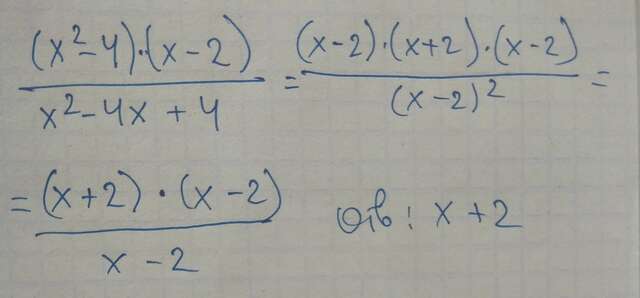 (x²-4)·(x-2) / x²-4x+4 = (x-2)·(x+2)·(x-2) / (x-2)² =
= (x+2)·(x-2) / x-2 Отв: x+2